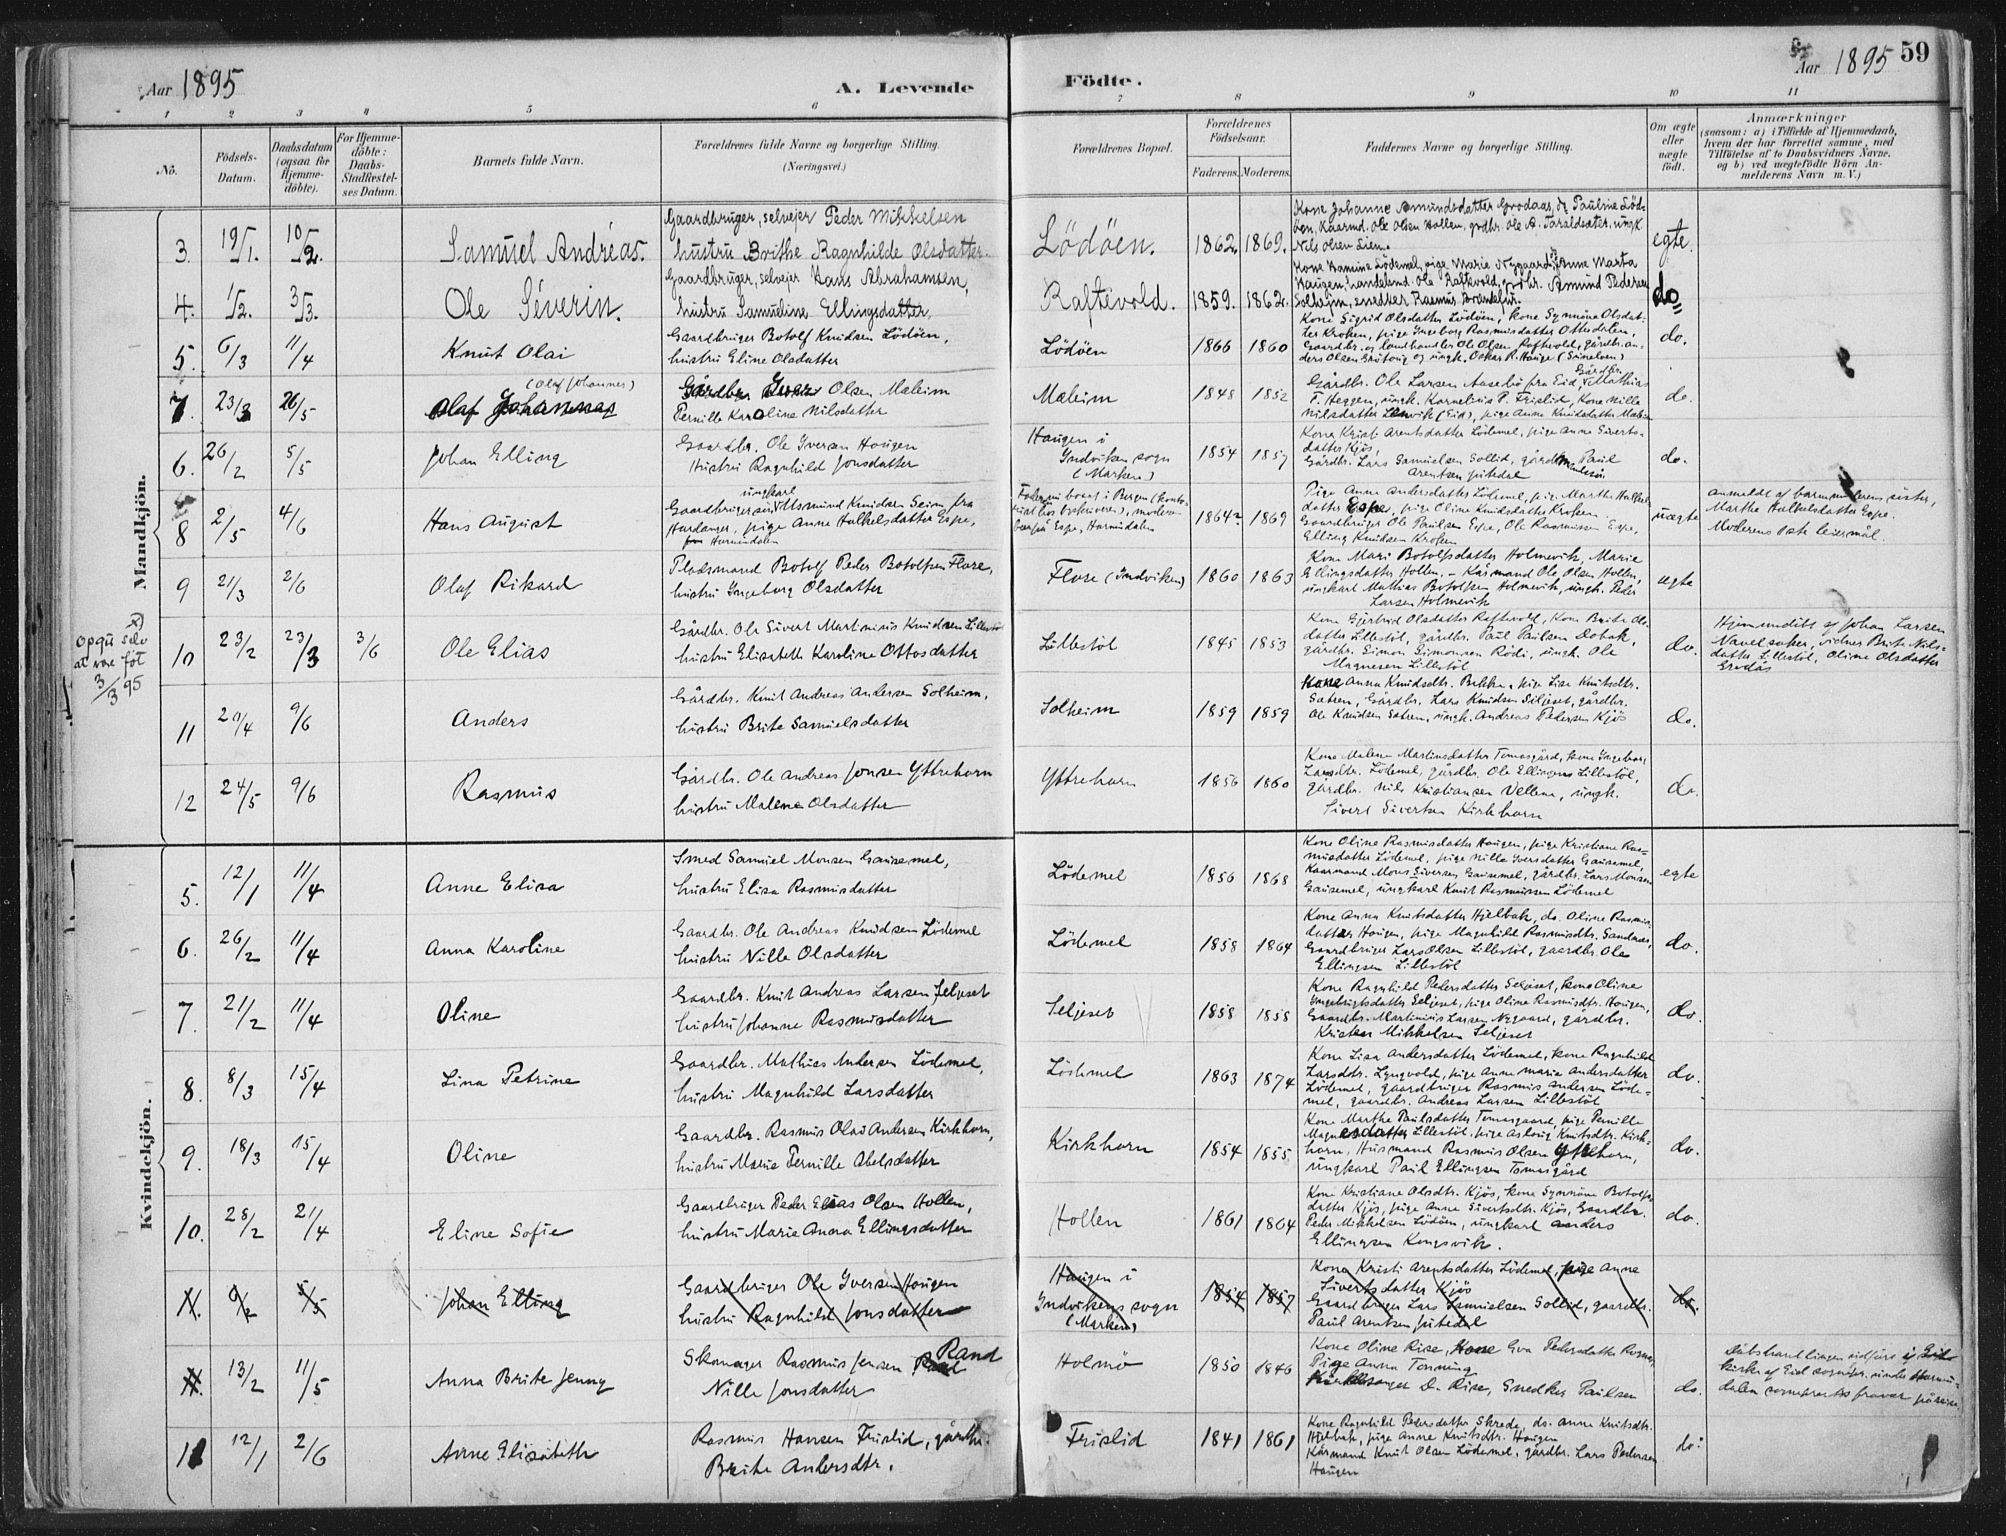 Aar 1895
A. Levende
Födte.
Aar 1895
59
1 2 3 4 5 6 7 8 9 10 11
No.
Födsels-
Datum.
Daabsdatum
(ogsaa for
Hjemme-
döbte).
For Hjemme-
döbte:
Daabs-
Stadfæstel-
ses Datum.
Barnets fulde Navn.
Forældrenes fulde Navne og borgerlige Stilling.
(Næringsvei.)
Forældrenes Bopæl.
Forældrenes
Födselsaar.
Faderens. Moderens.
Faddernes Navne og borgerlige Stilling.
Om ægte
eller
uægte
födt.
Anmærkninger
(saasom: a) i Tilfælde af Hjemmedaab,
hvem der har forrettet samme, med
Tilföielse af to Daabsvidners Navne,
og b) ved uægtefödte Börn An-
melderens Navn m. V.)
Mandkjön.
3. 19/1. 10/2. Samuel Andreas.
Gaardbruger, selvejer Peder Mikkelsen
hustru Brithe Ragnhilde Olsdatter.
Lödöen. 1862. 1869.
Kone Johanne Amundsdatter Grodaas, do Pauline Löd-
öen, Kaarmd. Ole Olsen Hollen, grdbr. Ole A. Taraldsæter, ungk.
Nils Olsen Lien.
egte.
4. 1/2. 3/3. Ole Séverin.
Gaardbruger, selvejer Hans Abrahamsen,
hustru Samueline Ellingsdatter,
Raftevold. 1859. 1862.
Kone Hansine Lödemel, pige Marie Nygaard, Anne Marta
Haugen, handelsmd. Ole Raftevold, grdbr. Amund Pedersen
Solheim, snedker Rasmus
do
5. 6/3 11/4 Knut Olai
Gaardbruger Botolf Knudsen Lödöen,
hustru Eline Olsdatter
Lödöen 1866 1860
Kone Sigrid Olsdatter Lödöen, kone Synnöve Olsdat-
ter Kroken, pige Ingeborg Rasmusdatter Ottesdalen,
Gaardbr. og landhandler Ole Olsen Raftevold, gårdbr. An-
ders Olsen og ungk. Oskar R. Hauge
do.
7. 23/3 26/5 (Olaf Johannes)
Olaf Johannes
Gårdbr. Iver Olsen Maleim
Pernille Karoline Nilsdatter
Maleim 1848 1852
Gårdbr. Ole Larsen Aasebö fra Eid, Gårdbr. Mathias
T. Heggen, ungk. Kornelius P. Frislid, Kone Nille
Nilsdatter Lenvik (Eid), pige Anne Knudsdatter Maleim
do.
6. 26/2 5/5 Johan Elling
Gaardbr. Ole Iversen Haugen
Hustru Ragnhild Jonsdatter
Haugen i
Indviken sogn
(Marken)
1854 1857
Kone Kristi Arentsdatter Lödemel, pige Anne Siverts-
datter Kjös,
Gårdbr. Lars Samuelsen Sollid, gårdbr. Paul
Arentsen
do.
8 2/5 4/6 Hans August
ungkarl
Gaardbrugersön Asmund Knudsen Seim fra
Hardanger, pige Anne Halkelsdatter Espe,
fra Hornindalen
1864 1869
Pige Anne Andersdatter Lödemel, pige Marthe Halkels
datter Espe, pige Oline Knudsdatter Kroken.
Gaardbruger Ole Paulsen Espe, Ole Rasmussen Espe,
Elling Knudsen Kroken
uægte
Anmeldt af barnemoderens söster,
Marthe Halkelsdatter Espe.
Moderens 1ste leiermål.
9 21/3 2/6 Olaf Rikard
Pladsmand Botolf Peder Botolfsen Flore,
hustru Ingeborg Olsdatter
Flore (Indviken) 1860 1863
Kone Mari Botolfsdatter Holmevik, Marie
Ellingsdatter Hollen, – Kårmand Ole Olsen Hollen,
ungkarl Mathias Botolfsen Holmevik, ungk. Peder
Larsen Holmevik
egte
x) opgir selv
at var föt
3/3 95
10 23/2 23/3 3/6 Ole Elias
Gårdbr. Ole Sivert Martinius Knudsen Lillestöl
hustru Elisabeth Karoline Ottosdatter
Lillestöl 1845 1853
Kone Gjertrud Olsdatter Raftevold, Kone Brite Ols-
datter Lillestöl, gårdbr. Paul Paulsen Dobak,
gårdbr. Simon Simonsen Rödi, ungk. Ole
Magnesen Lillestöl
do.
Hjemmedöbt af Johan Larsen
Navelsaker, vidner Brite Nils-
datter Lillestöl, Oline Olsdatter
Grodås
11 20/4 9/6 Anders
Gårdbr. Knut Andreas Andersen Solheim,
hustru Brite Samuelsdatter
Solheim 1859 1859
Kone Anna Knudsdtr. Bekka, pige Lisa Knutsdtr.
Sætren, Gårdbr. Lars Knudsen Seljeset, gårdbr.
Ole Knudsen Sætren, ungk. Andreas Pedersen Kjös
do.
12 24/5 9/6 Rasmus
Gårdbr. Ole Andreas Jonsen Yttrehorn
hustru Malene Olsdatter
Yttrehorn 1856 1860
Kone Malene Martinsdatter Tomasgård, kone Ingeborg
Larsdtr. Lödemel, gårdbr. Ole Ellingsen Lillestöl,
gårdbr. Nils Kristiansen Vellene, ungk.
Sivert Sivertsen Kirkhorn
do.
Kvindekjön.
5. 12/1 11/4 Anne Elisa
Smed Samuel Monsen Gausemel,
hustru Elisa Rasmusdatter
Lödemel 1856 1868
Kone Oline Rasmusdatter Haugen, pige Kristiane Ras-
musdatter Lödemel, pige Nille Iversdatter Gausemel,
Kaarmand Mons Siversen Gausemel, gårdbr. Lars Monsen
Gausemel, ungkarl Knut Rasmussen Lödemel
egte
6. 26/2 11/4 Anna Karoline
Gaardbr. Ole Andreas Knudsen Lödemel
hustru Nille Olsdatter
Lödemel 1858 1864
Kone Anna Knutsdatter Hjelbak, do. Oline Rasmus-
datter Haugen, pige Magnhild Rasmusdtr. Sandnes,
Gaardbruger Lars Olsen Lillestöl, gaardbr. Ole
Ellingsen Lillestöl
do.
7. 21/2 11/4 Oline
Gaardbr. Knut Andreas Larsen Seljeset
hustru Johanne Rasmusdatter
Seljeset 1858 1858
Kone Ragnhild Pedersdatter Seljeset, kone Oline
Ingebrigtsdatter Seljeset, pige Oline Rasmusdtr. Haugen,
Gaardbr. Martinius Larsen Nygaard, gårdbr.
Kristen Mikkelsen Seljeset
do.
8. 8/3 15/4 Lina Petrine
Gaardbr. Mathias Andersen Lödemel,
hustru Magnhild Larsdatter
Lödemel 1863 1874
Kone Lisa Andersdatter Lödemel, kone Ragnhild
Larsdtr. Lyngvold, pige Anne Marie Andersdatter
Lödemel, gaardbruger Rasmus Andersen Löde-
mel, gaardbr. Andreas Larsen Lillestöl
do.
9. 18/3 15/4 Oline
Gaardbr. Rasmus Olai Andersen Kirkhorn,
hustru Maria Pernille Abelsdatter
Kirkhorn 1854 1855
Kone Marthe Paulsdatter Tomasgaard, pige Pernille
Magnesdatter Lillestöl, pige Aslaug Knutsdtr. Kirk-
horn, Husmand Rasmus Olsen Yttrehorn,
ungkarl Paul Ellingsen Tomasgård
do.
10. 28/2 21/4 Eline Sofie
Gaardbruger Peder Elias Olsen Hollen,
hustru Marie Anna Ellingsdatter
Hollen 1861 1864
Kone Kristiane Olsdtr. Kjös, kone Synnöve Botolfs-
datter Kjös, pige Anne Sivertsdtr. Kjös, Gaardbr.
Peder Mikkelsen Lödöen, ungkarl Anders
Ellingsen Kongsvik.
do.
11. 9/2 5/5 Johan Elling
Gaardbruger Ole Iversen Haugen
hustru Ragnhild Jonsdatter
Haugen i
Indvikens sogn
(Marken)
1854 1857
Kone Kristi Arentsdatter Lödemel, pige Anne
Sivertsdatter Kjös
Gaardbruger Lars Samuelsen Sollid, gaardbr.
Paul Arentsen
do.
11. 13/2 11/5 Anna Brite Jenny
Skomager Rasmus Jensen Rand
Nille Jonsdatter
Holmö 1850 1846
Kone Oline Rise, Kone Eva Pedersdatter
Pige Anna Tonning
D. Rise, Snedker Paulsen
do.
Dåbshandlingen udfört i Eids
kirke af Eid sognepr. under Hornin-
dalen sogneprests fravær på reise
11 12/1 2/6 Anne Elisabeth
Rasmus Hansen Frislid, gårdbr.
Brite Andersdtr.
Frislid 1841 1861
Kone Ragnhild Pedersdatter Skrede, do. Anne Knutsdtr.
Hjelbak, pige Anne Knutsdtr. Haugen
Kårmand Knut Olsen Lödemel, gårdbr. Lars Pedersen
Haugen
do.